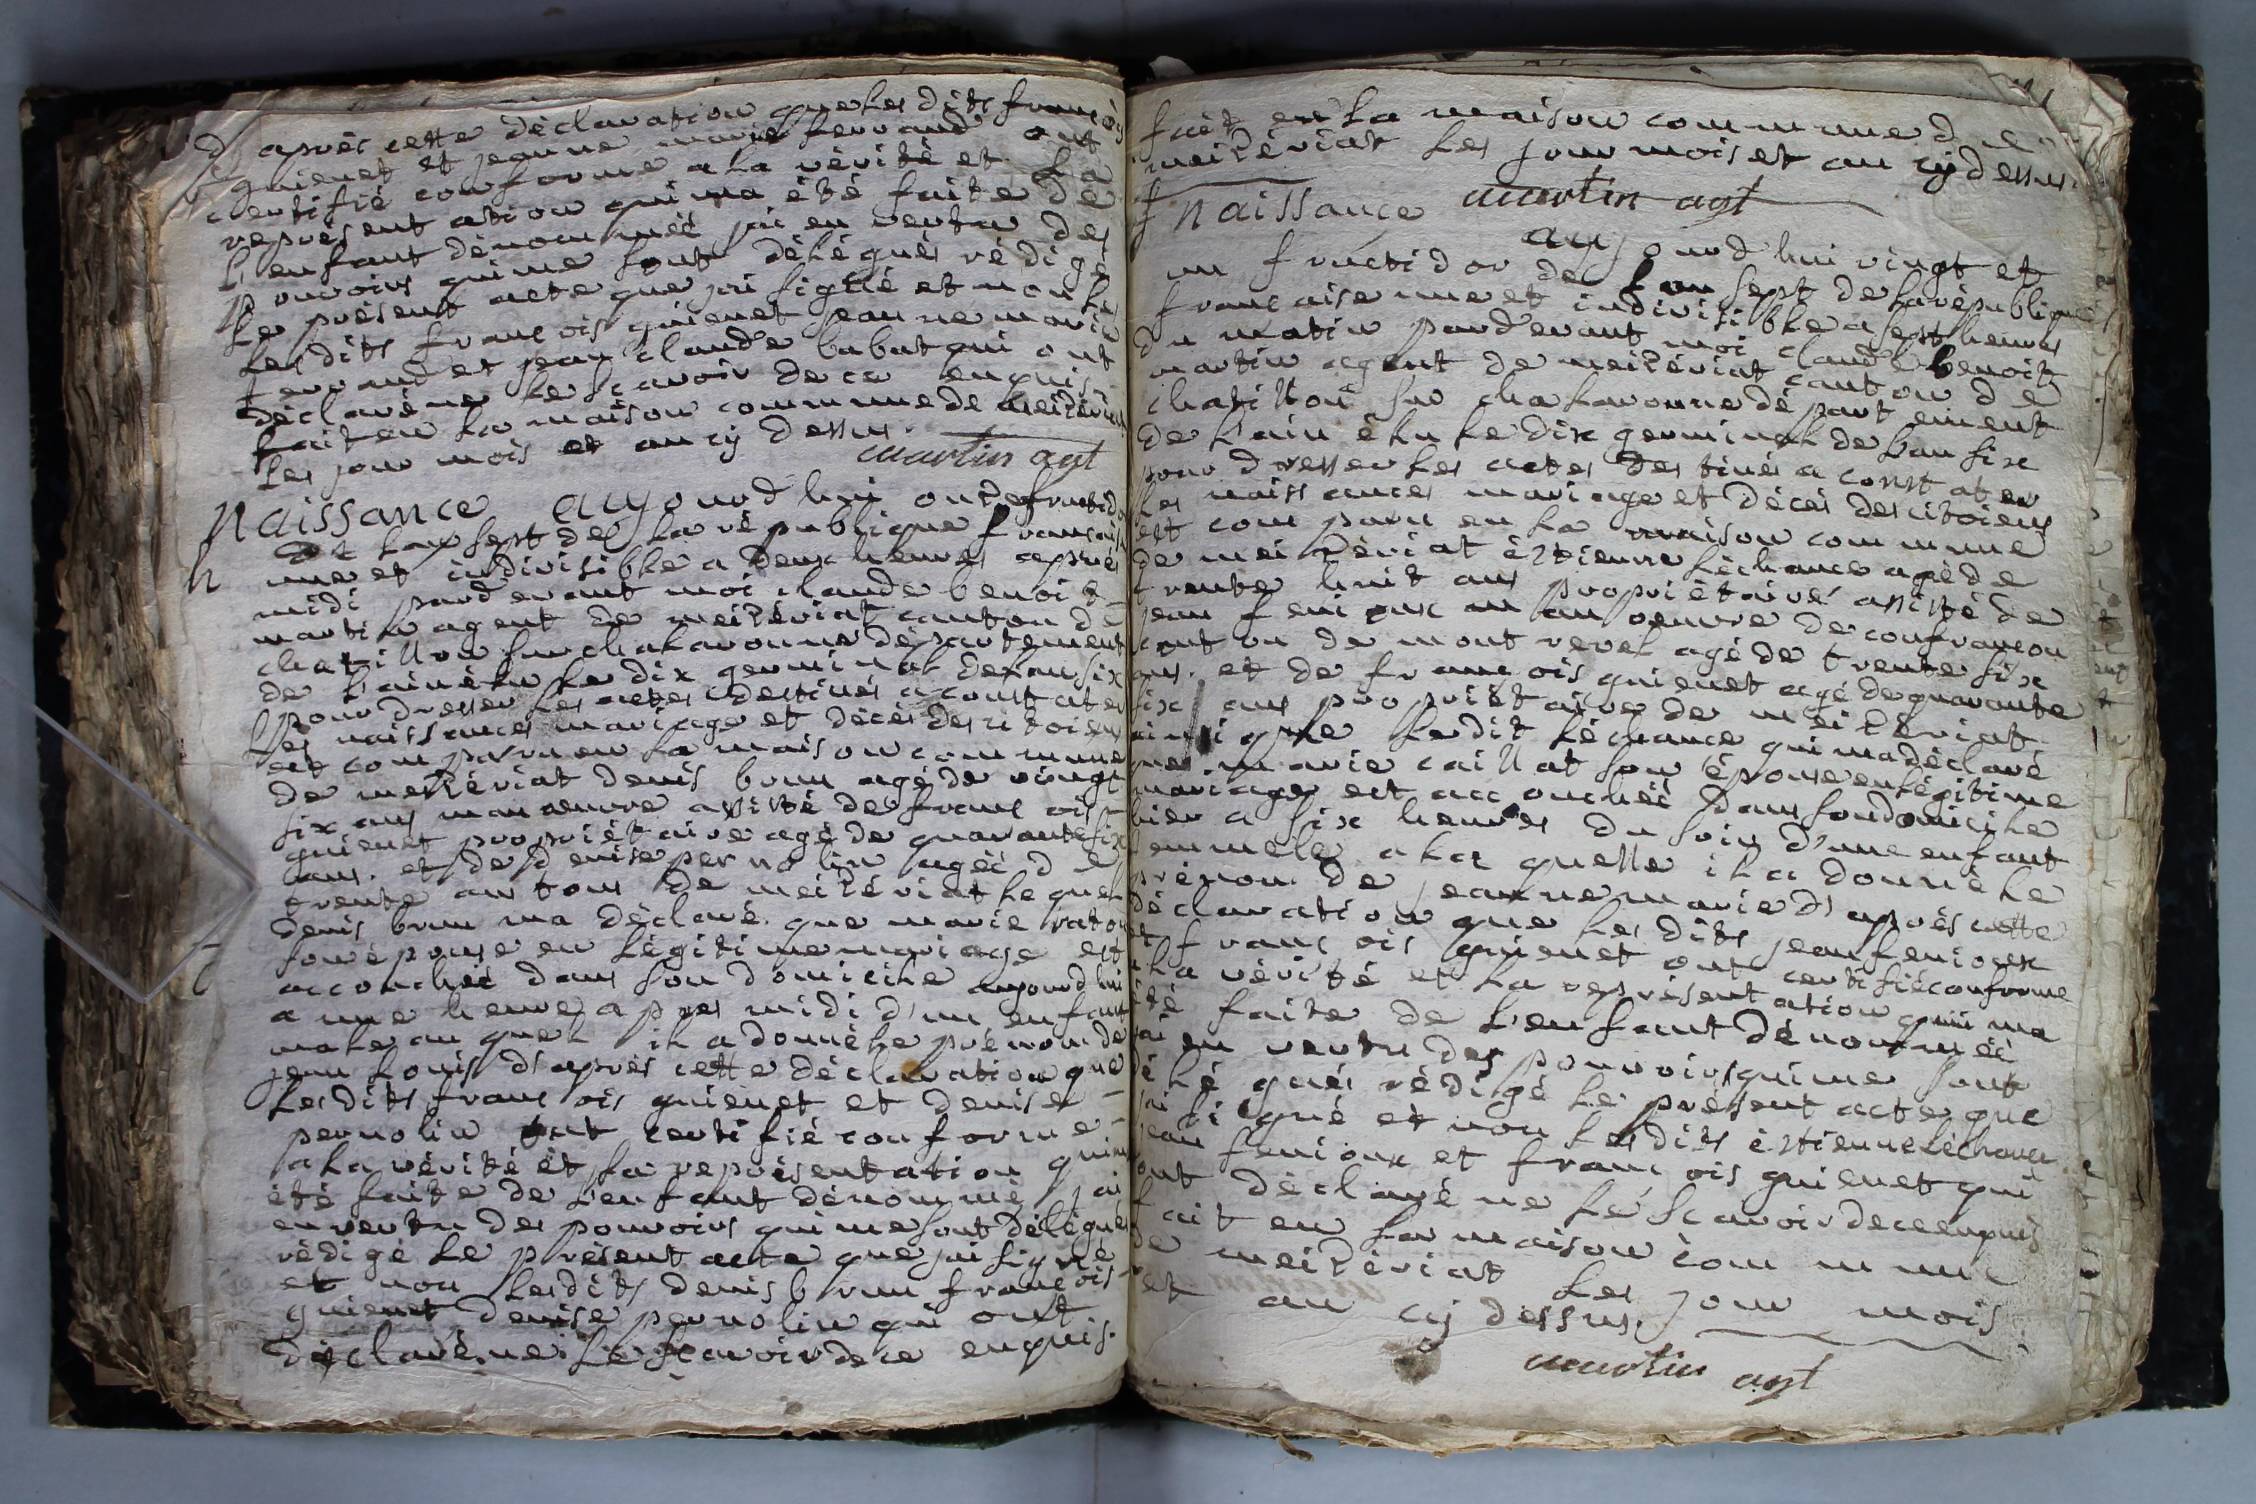 d'après cette déclaration que les dits françois
guienet et jeanne marie ferrand ont
certifié conforme a la vérité et la
représentation qui ma été faite de
l'enfant dénommé jai en vertu des
pouvoirs qui me sont délégués rédigé
le présent acte que jai signé et non
les dits françois guienet jeanne marie
ferrand et jean claude babat qui ont
déclaré ne le scavoir de ce enquis.
fait en la maison commune de meizériat
les jour mois et an cÿ dessus.
martin agt
Naissance aujourd hui onze fructidor
de lan sept de la république francaise
une et indivisible a deux heures après
midi pardevant moi claude benoit
martin agent de meizériat canton de
chatillon sur chalaronne département
de l'ain élu le dix germinal de lan six
pour dresser les actes destinés a constater
les naissances mariage et décès des citoiens
est comparu en la maison commune
de meizériat denis brun agé de vingt
six ans manoeuvre assisté de francois
guienet propriétaire agé de quarante six
ans. et de denise pernolin agéé de
trente an tous de meizériat lequel
denis brun ma déclaré que marie raton
son épouse en légitime mariage est
accouchéé dans son domicile aujourd hui
a une heure apres midi d'un enfant
male au quel il a donné le prénom de
jean louis d'après cette déclaration que
les dits francois guienet et denise
pernolin ont certifié conforme
a la vérité et la représentation qui ma
été faite de l'enfant dénommé jai
en vertu des pouvoirs qui me sont délégués
rédigé le présent acte que jai signé
et non lesdits denis brun francois
guienet denise pernolin qui ont
déclaré ne le scavoir de ce enquis.
fait en la maison commune de
meizériat les jour mois et an cÿ dessus.
martin agt
Naissance
aujourd hui vingt et
un fructidor de lan sept de la république
francaise une et indivisible a sept heures
du matin pardevant moi claude benoit
martin agent de meizériat canton de
chatillon sur chalaronne département
de l'ain élu le dix germinal de lan six
pour dresser les actes destinés a constater
les naissances mariage et décès des citoiens
est comparu en la maison commune
de meizériat éstienne léchance agé de
trente huit ans propriétaire assisté de
jean fenioux manoeuvre de confrancon
canton de mont revel agé de trente six
ans. et de francois guienet agé de quarante
six ans propriétaire de meizériat
ledit léchance qui ma déclaré
que marie caillat son épouse en légitime
mariage est accouchéé dans son domicile
hier a six heures du soir d'une enfant
femmele a la quelle il a donné le
prénom de jeanne marie d'après cette
déclaration que les dits jean fenioux
et francois guienet ont certifié conforme
a la vérité et la représentation qui ma
été faite de l'enfant dénomméé
jai en vertu des pouvoirs qui me sont
délégués rédigé le présent acte que
jai signé et non lesdits éstienne léchance
jean fenioux et francois guienet qui
ont déclaré ne le scavoir de ce enquis
fait en la maison commune
de meizériat les jour mois
et an cÿ dessus.
martin agt